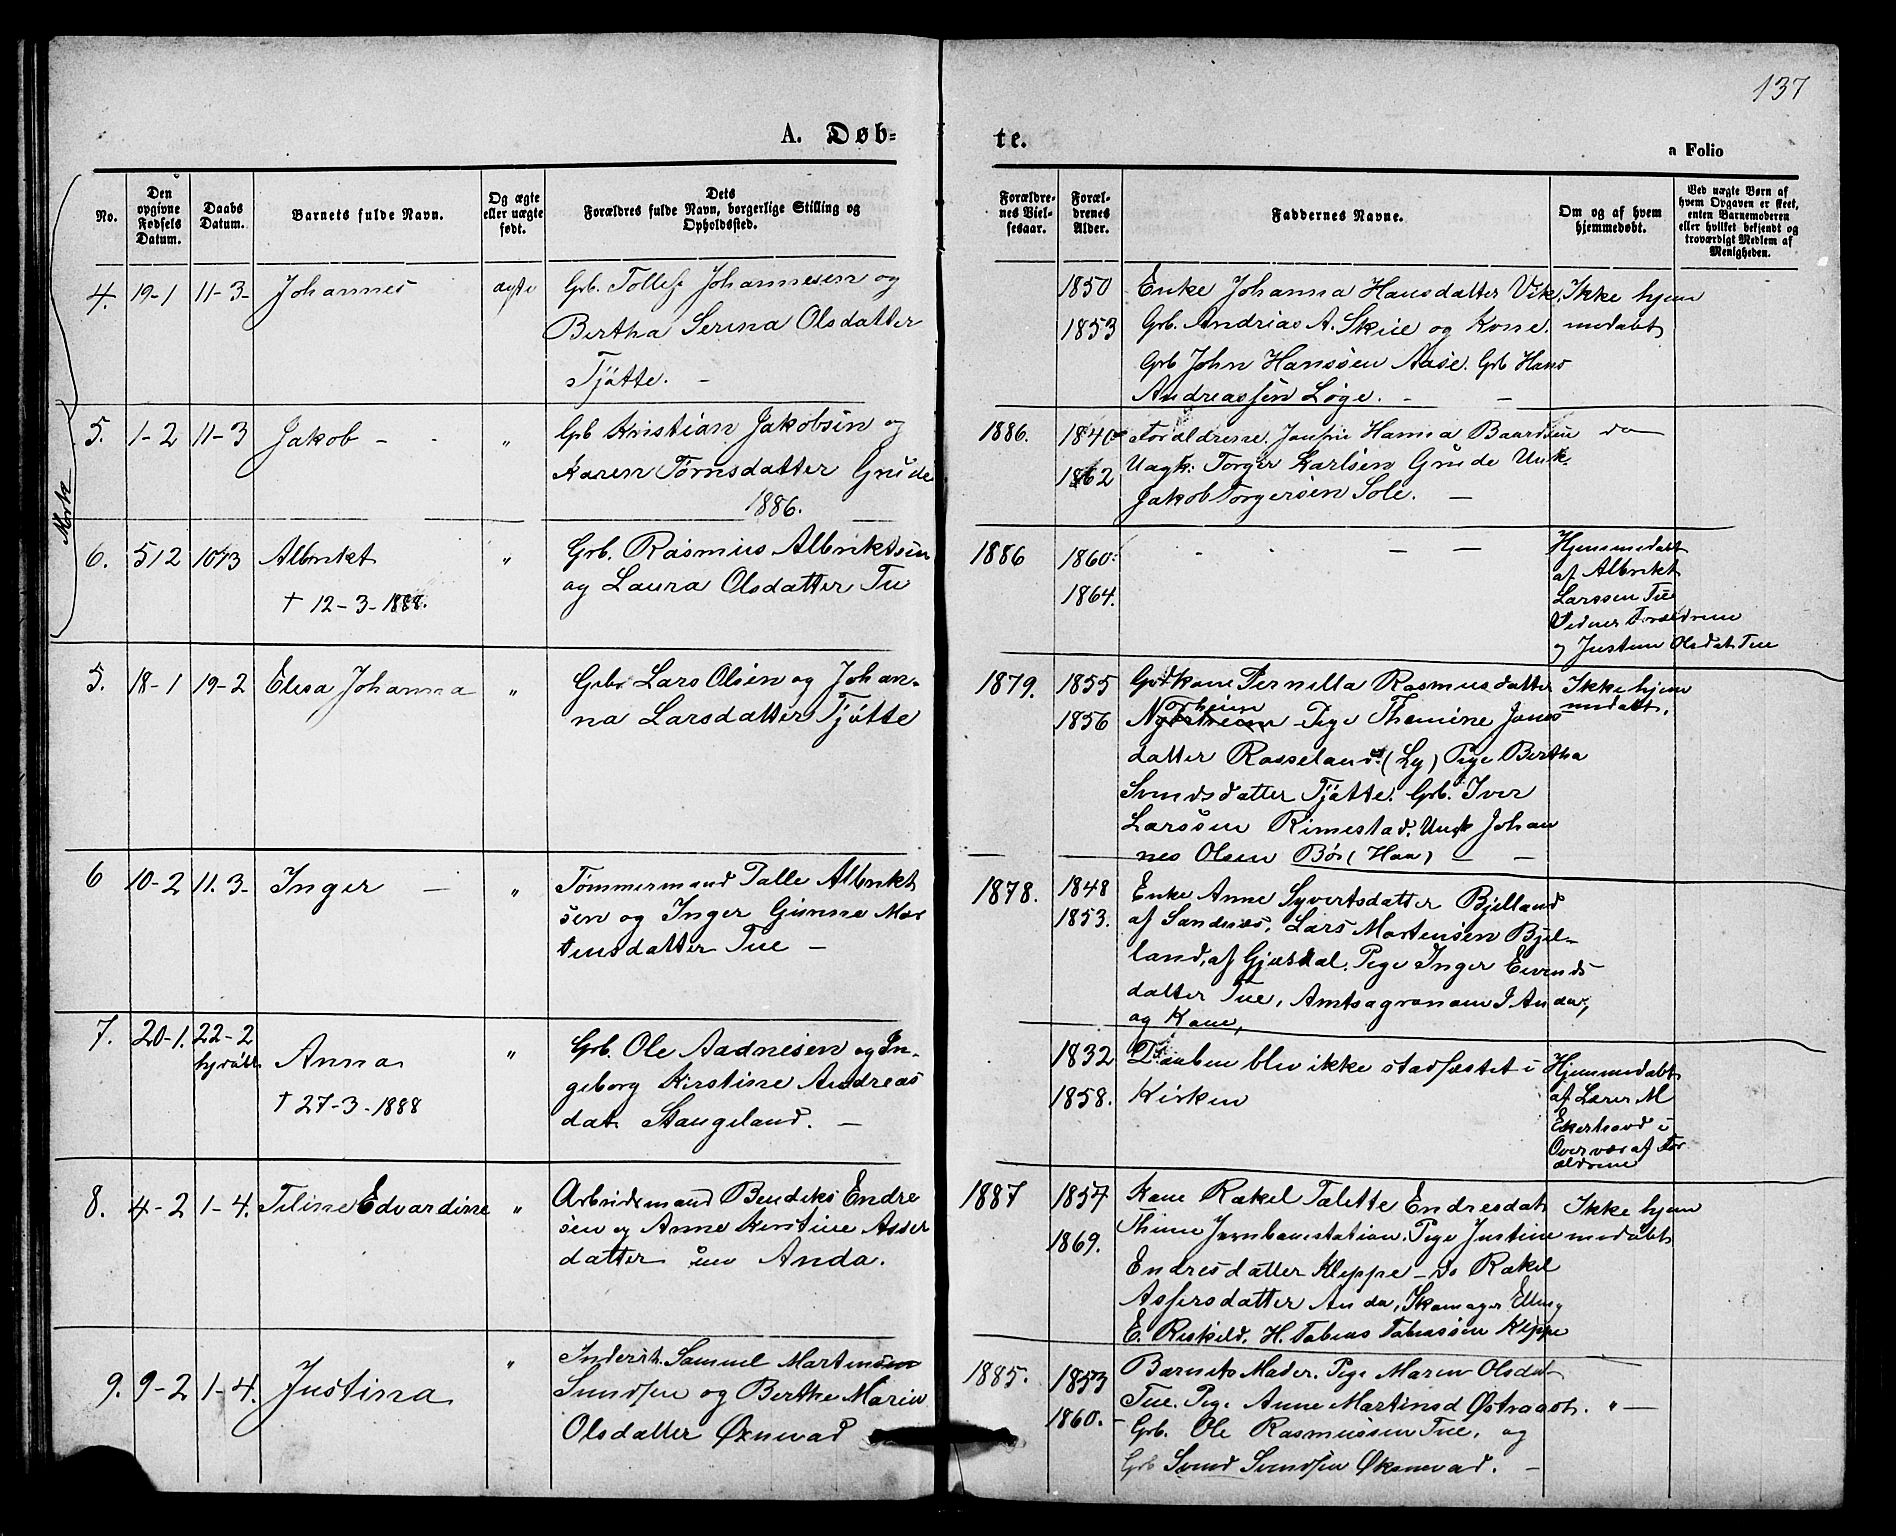 137
A. Døb-
te.
a Folio
No.
Den opgivne Fødsels Datum.
Daabs Datum.
Barnets fulde Navn.
Og ægte eller uægte født.
Dets Forældres fulde Navn, borgerlige Stilling og Opholdssted.
Forældrenes Vielsesaar.
Forældrenes Alder.
Faddernes Navne.
Om og af hvem hjemmedøbt.
Ved uægte Børn af hvem Opgaven er skeet, enten Barnemoderen eller hvilket bekjendt og troværdigt Medlem af Menigheden.
4. 19-1 11-3- Johannes ægte
Grb. Tollef Johannesen og
Bertha Serina Olsdatter
Tjøtte. -
1850
1853
Enke Johanna Hansdatter Vik,
Grb. Andrias A. Skiie og Kone.
Grb John Hanssen Aase. Grb Hans
Andreassen Løge. -
Ikke hjem
medøbt
5. 1-2 11-3 Jakob - - "
Grb Kristian Jakobsen og
Karen Tørnsdatter Grude
1886.
1886.
1840
1862
Foraldrene. Jomfru Hanna Baardsen
Ungk: Torger Karlsen Grude Unk.
Jakob Torgersen Sole. -
do
6. 5/2 10/3 Albrikt "
† 12-3-1888.
Grb. Rasmus Albriktsen
og Laura Olsdatter Tu
1886
1860.
1864.
Hjemmedøbt
af Albrikt
Larssen Tue
Vidner Foraldrene
og Justine Olsdat. Tue
5. 18-1 19-2 Elisa Johanna "
Grbr Lars Olsen og Johan-
na Larsdatter Tjøtte
1879.
1855
1856
Grdkone Pernilla Rasmusdatter
Norheim Pige Thamine Jons
datter Rosseland (Ly) Pige Bertha
Svendsdatter Tjøtte. Grb. Iver
Larssen Rimestad. Ungk Johan
nes Olsen Bør (Haa) - -
Ikke hjem
medøbt.
6 10-2 11.3- Inger - "
Tømmermand Palle Albrikt
sen og Inger Gunne Mor
tensdatter Tue -
1878.
1848
1853.
Enke Anne Syvertsdatter Bjelland
af Sandnæs, Lars Mortensen Bjel-
land, af Gjæsdal. Pige Inger Eivends
datter Tue, Amtsagronom I Anda,
og Kone,
7. 20-1. 22-2 hjdøbt Anna "
† 27-3-1888
Grb. Ole Aadnesen og In-
geborg Kirstine Andreas
dat. Stangeland. -
1832
1858.
Daaben blev ikke stadfæstet i
Kirken
Hjemmedøbt
af Lærer M
Overvær af For
ældrene
8. 4-2 1-4. Teline Edvardine "
Arbeidsmand Bendiks Endre
sen og Anne Kirstine Asser
datter Anda.
1887
1857
1869.
Kone Rakel Talette Endresdat
Thime Jernbanestation. Pige Justine
Endresdatter Kleppe - do Rakel
Assersdatter Anda, Skomager Elling
E. Riskild. H. Tobias Tobiassen Kleppe
Ikke hjem
medøbt
9. 9-2 1-4. Justina "
Inderst. Samuel Martinsen
Svendsen og Berthe Marie
Olsdatter Øxnevad
1885.
1853
1860. -
Barnets Moder. Pige Maren Olsdat
Tue. Pige Anne Martinsd Østraadt.
Grb. Ole Rasmussen Tue, og
Grb Svend Svendsen Øksnevad. -
" -